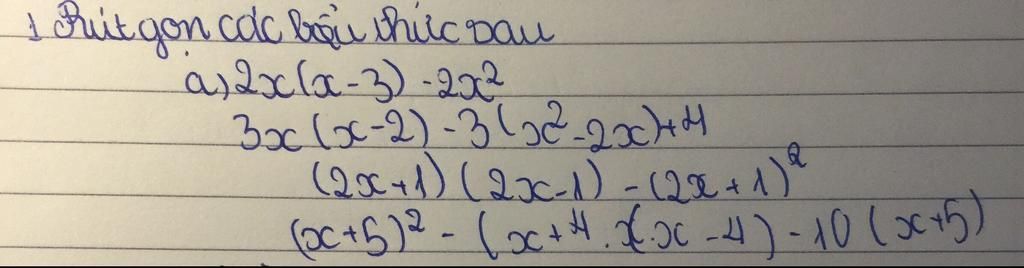 1 Rút gọn các biểu thức sau
a) 2x(x-3) - 2x²
3x(x-2) - 3(x²-2x)+4
(2x+1)(2x-1) - (2x+1)²
(x+5)² - (x+4.)(.x-4) - 10(x+5)